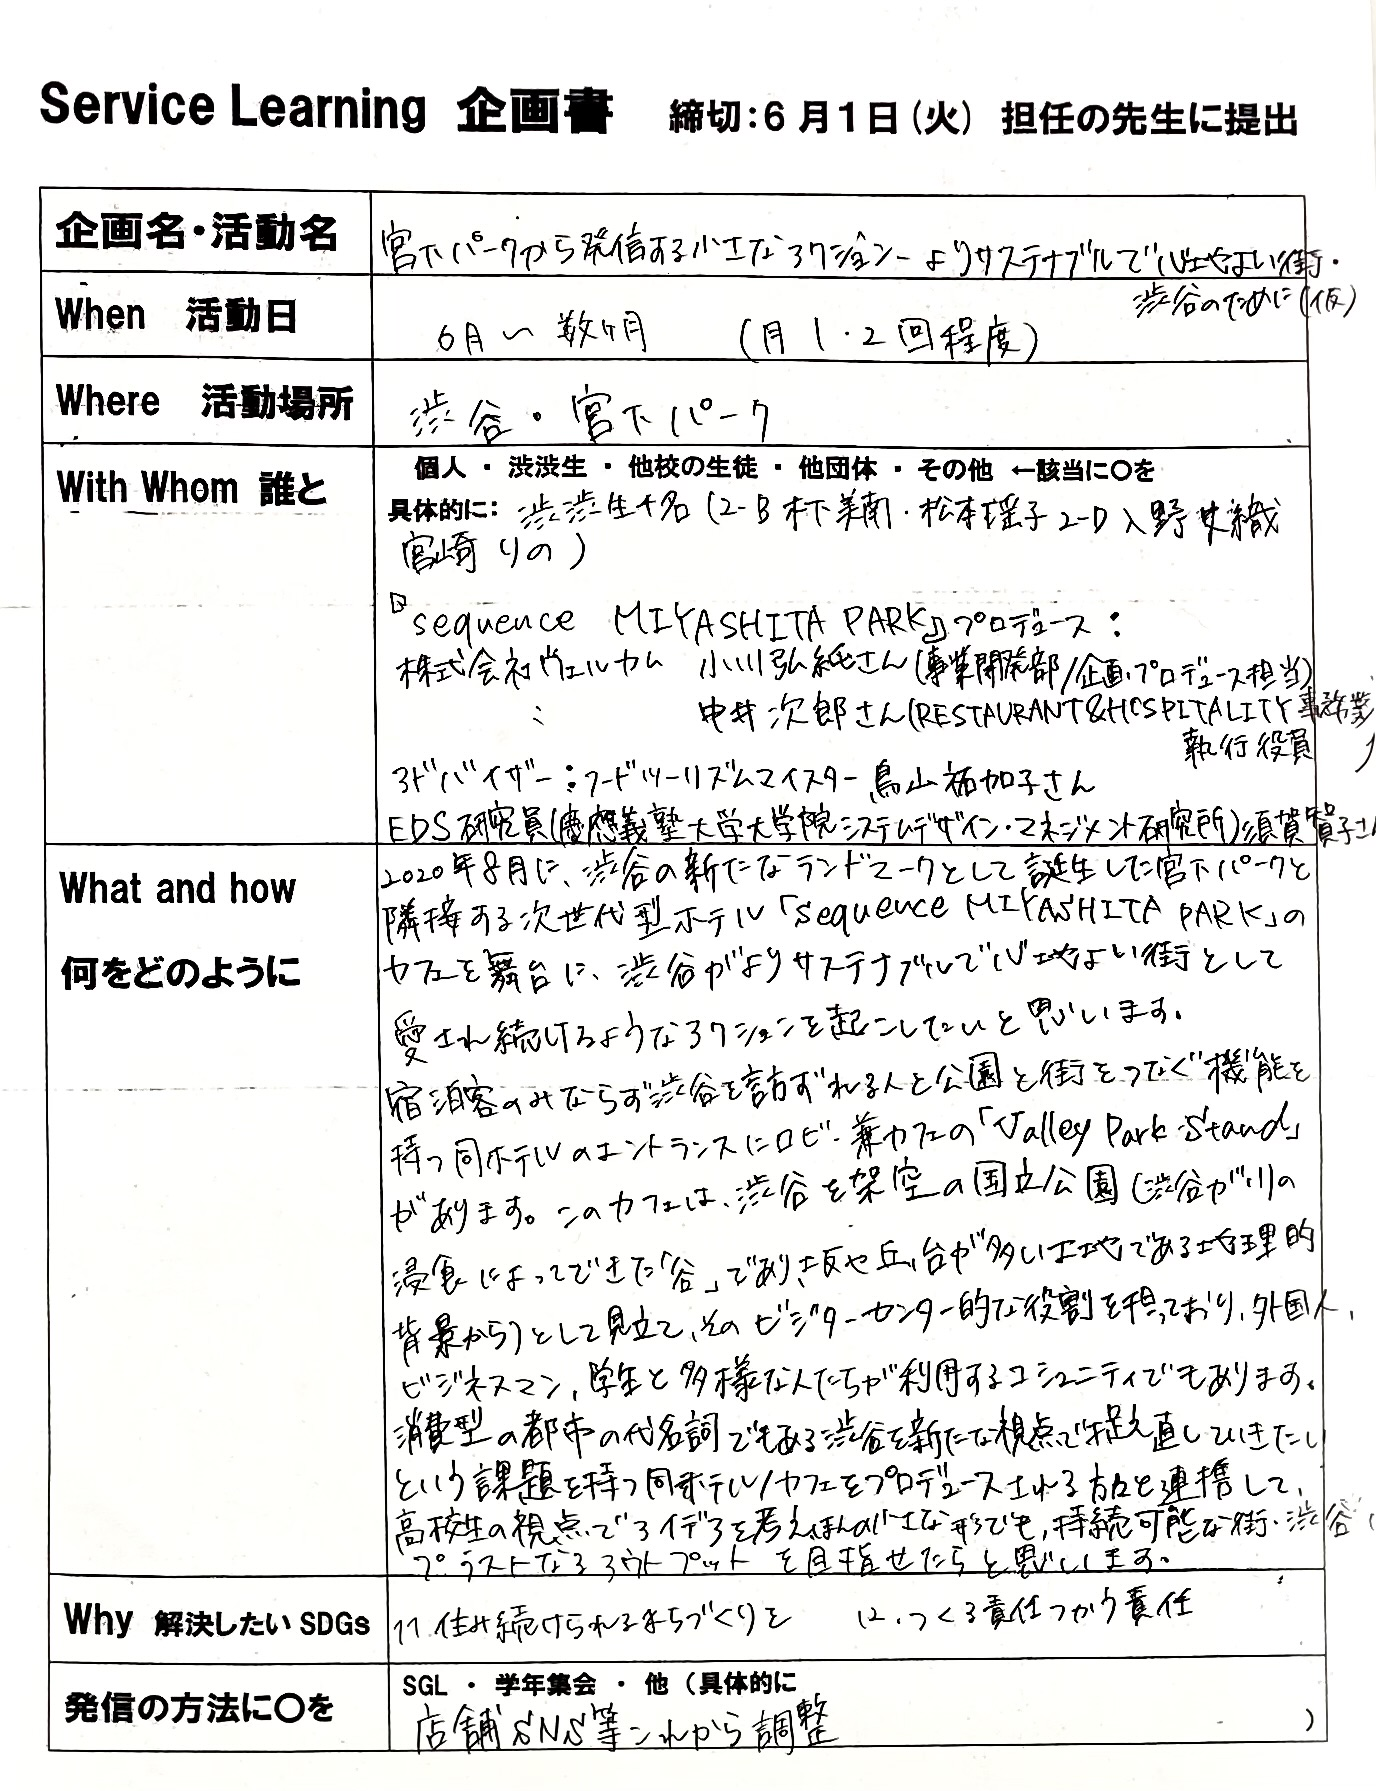 Service Learning 企画書 締切:6月1日(火) 担任の先生に提出
企画名・活動名
宮下パークから発信する小さなアクション-よりサステナブルで心地よい街・
渋谷のために(仮)
When 活動日
6月〜数ヶ月 (月1・2回程度)
Where 活動場所
渋谷・宮下パーク
With Whom 誰と
個人 ・ 渋渋生 ・ 他校の生徒 ・ 他団体 ・ その他 ←該当に○を
具体的に: 渋渋生4名(2-B 木下美南・松本瑶子 2-D 入野 織
宮崎りの)
『sequence MIYASHITA PARK』プロデュース:
株式会社ヴェルカム 小川弘純さん(事業開発部/企画・プロデュース担当)
: 中井次郎さん(RESTAURANT&HOSPITALITY事業
執行役員)
アドバイザー:フードツーリズムマイスター鳥山祐加子さん
EDS研究員(慶應義塾大学大学院システムデザイン・マネジメント研究所)須賀 子さん
What and how
何をどのように
2020年8月に、渋谷の新たなランドマークとして誕生した宮下パークと
隣接する次世代型ホテル「sequence MIYASHITA PARK」の
カフェを舞台に、渋谷がよりサステナブルで心地よい街として
愛され続けるようなアクションを起こしたいと思います。
宿泊客のみならず渋谷を訪ずれる人と公園と街をつなぐ機能を
持つ同ホテルのエントランスにロビー兼カフェの「Valley Park Stand」
があります。このカフェは、渋谷を架空の国立公園(渋谷が川の
浸食によってできた「谷」であり、坂や丘、台が多い土地である地理的
背景から)として見立て、そのビジターセンター的な役割を担っており、外国人、
ビジネスマン、学生と多様な人たちが利用するコミュニティでもあります。
消費型の都市の代名詞でもある渋谷を新たな視点で捉え直していきたい
という課題を持つ同ホテル/カフェをプロデュースされる方々と連携して、
高校生の視点でアイデアを考えほんの小さな形でも、持続可能な街・渋谷に
プラストなるアウトプットを目指せたらと思います。
Why 解決したいSDGs
11.住み続けられるまちづくりを 12.つくる責任つかう責任
発信の方法に○を
SGL ・ 学年集会 ・ 他 (具体的に
店舗SNS等これから調整 )